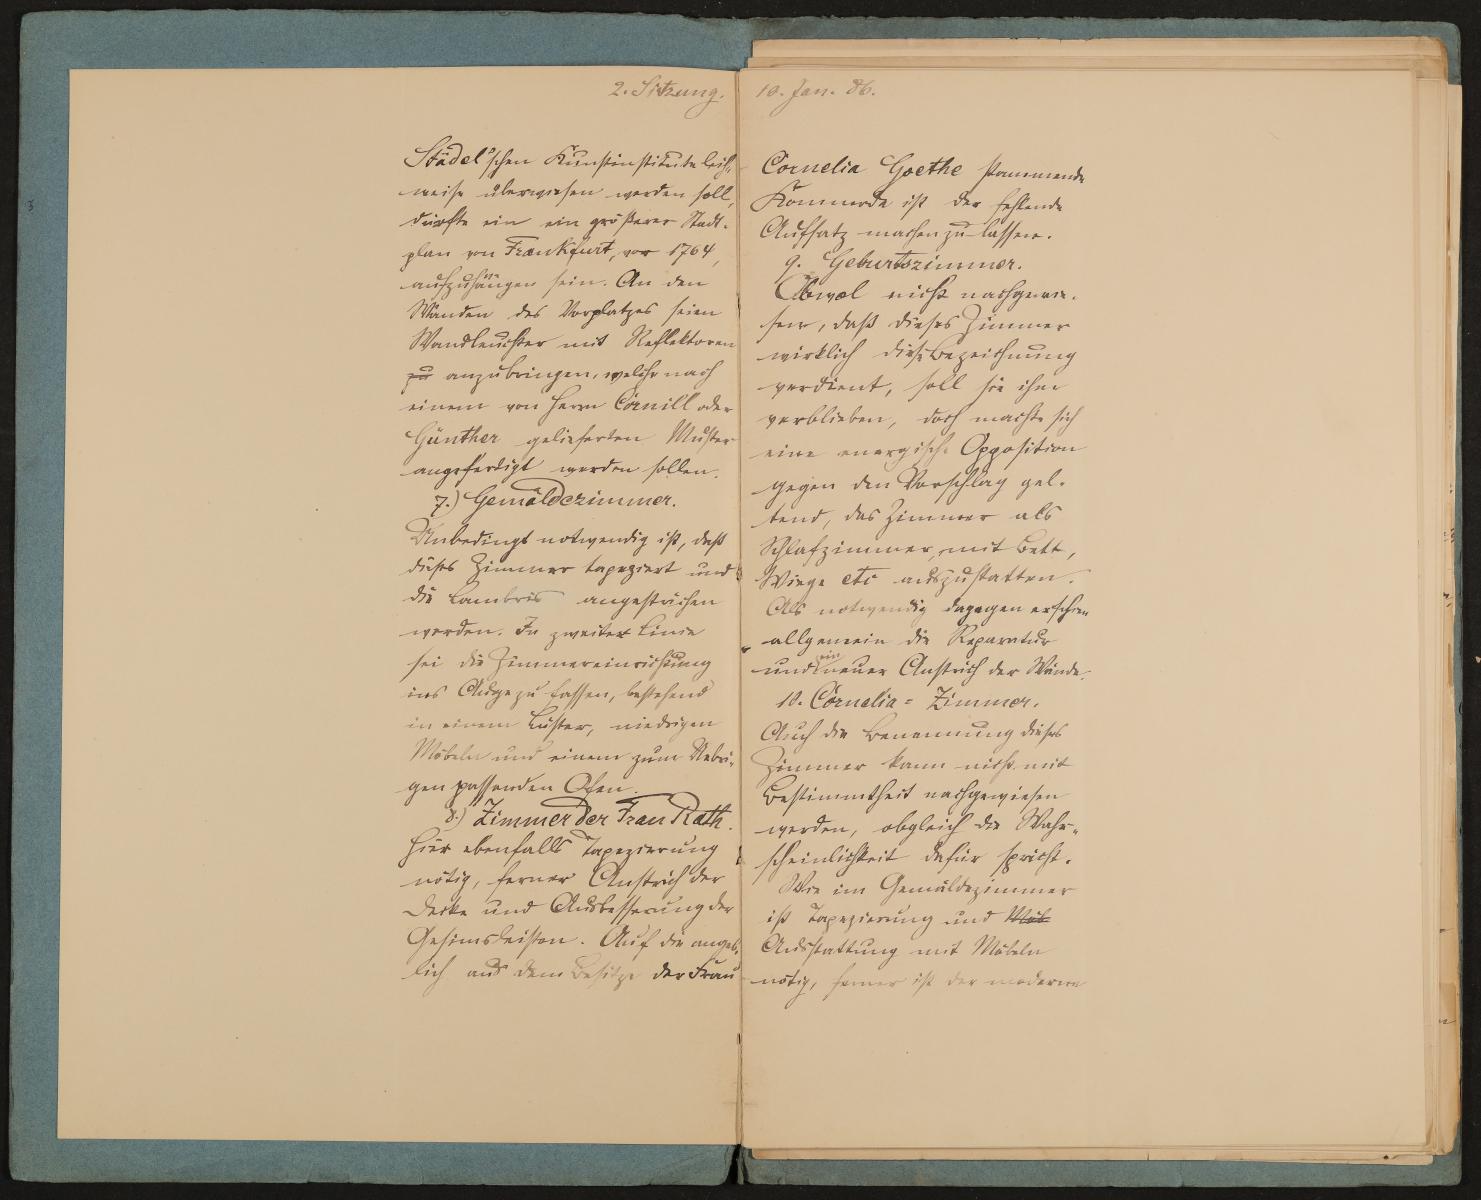 2. Sitzung.
Städel'schen Kunstinstitute leih-
weise überwiesen werden soll,
dürfte ein ein größerer Stadt-
plan von Frankfurt, vor 1764,
aufzuhängen sein. An den
Wänden des Vorplatzes seien
Wandleuchter mit Reflektoren
zu anzubringen, welche nach
einem von Herrn Cornill oder
Günther gelieferten Muster
angefertigt werden sollen.
7.) Gemäldezimmer.
Unbedingt notwendig ist, daß
dieses Zimmer tapeziert und
die Lambris angestrichen
werden. In zweiter Linie
sei die Zimmereinrichtung
ins Auge zu fassen, bestehend
in einem Lüster, niedrigen
Möbeln und einem zum Uebri-
gen passenden Ofen.
8.) Zimmer der Frau Rath.
Hier ebenfalls Tapezierung
nötig, ferner Anstrich der
Decke und Ausbesserung der
Gesimsleisten. Auf die angeb-
lich aus dem Besitze der Frau
10. Jan. 86.
Cornelia Goethe stammende
Kommode ist der fehlende
Aufsatz machen zu lassen.
9. Geburtszimmer.
Obwol nicht nachgewie-
sen, daß dieses Zimmer
wirklich diese Bezeichnung
verdient, soll sie ihm
verblieben, doch machte sich
eine energische Opposition
gegen den Vorschlag gel-
tend, das Zimmer als
Schlafzimmer, mit Bett,
Wiege etc auszustatten.
Als notwendig dagegen erschien
allgemein die Reparatur
und ein neuer Anstrich der Wände.
10. Cornelia-Zimmer.
Auch die Benennung dieses
Zimmer kann nicht mit
Bestimmtheit nachgewiesen
werden, obgleich die Wahr-
scheinlichkeit dafür spricht.
Wie im Gemäldezimmer
ist Tapezierung und Möb
Ausstattung mit Möbeln
nötig, ferner ist der moderne